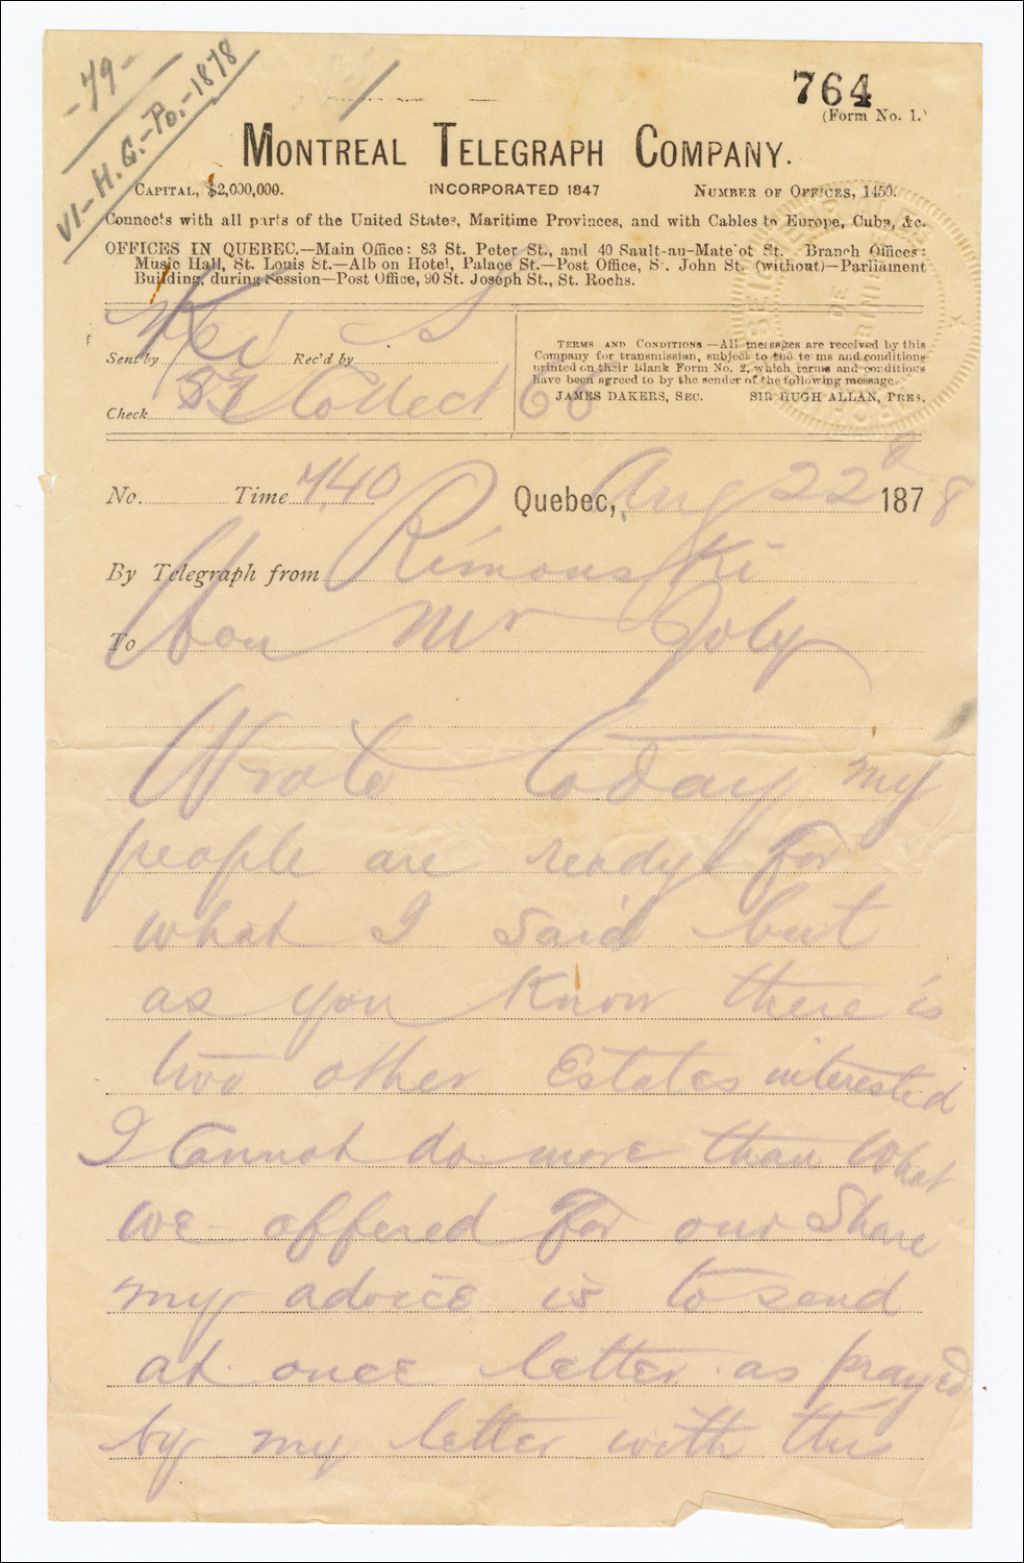 -79-
VI-H.G.-Po.-1878
764
(Form No. 1.)
MONTREAL TELEGRAPH COMPANY.
CAPITAL, $2,000,000. INCORPORATED 1847 NUMBER OF OFFICES, 1450.
Connects with all parts of the United States, Maritime Provinces, and with Cables to Europe, Cuba, &c.
OFFICES IN QUEBEC.—Main Office: 83 St. Peter St., and 40 Sault-au-Matelot St. Branch Offices:
Music Hall, St. Louis St.—Albion Hotel, Palace St.—Post Office, St. John St. (without)—Parliament
Building, during Session—Post Office, 90 St. Joseph St., St. Rochs.
Sent by Rec'd by
Check Collect 66
TERMS AND CONDITIONS—All messages are received by this
Company for transmission, subject to the terms and conditions
printed on their Blank Form No. 2, which terms and conditions
have been agreed to by the sender of the following message.
JAMES DAKERS, SEC. SIR HUGH ALLAN, PRES.
No. Time 7,40 Quebec, Aug 22d 1878
By Telegraph from Rimouski
To Hon Mr Joly
Wrote today my
people are ready for
what I said but
as you know there is
two other Estates interested
I cannot do more than what
we offered for our share
my advice is to send
at once letter as prayed
by my letter with this